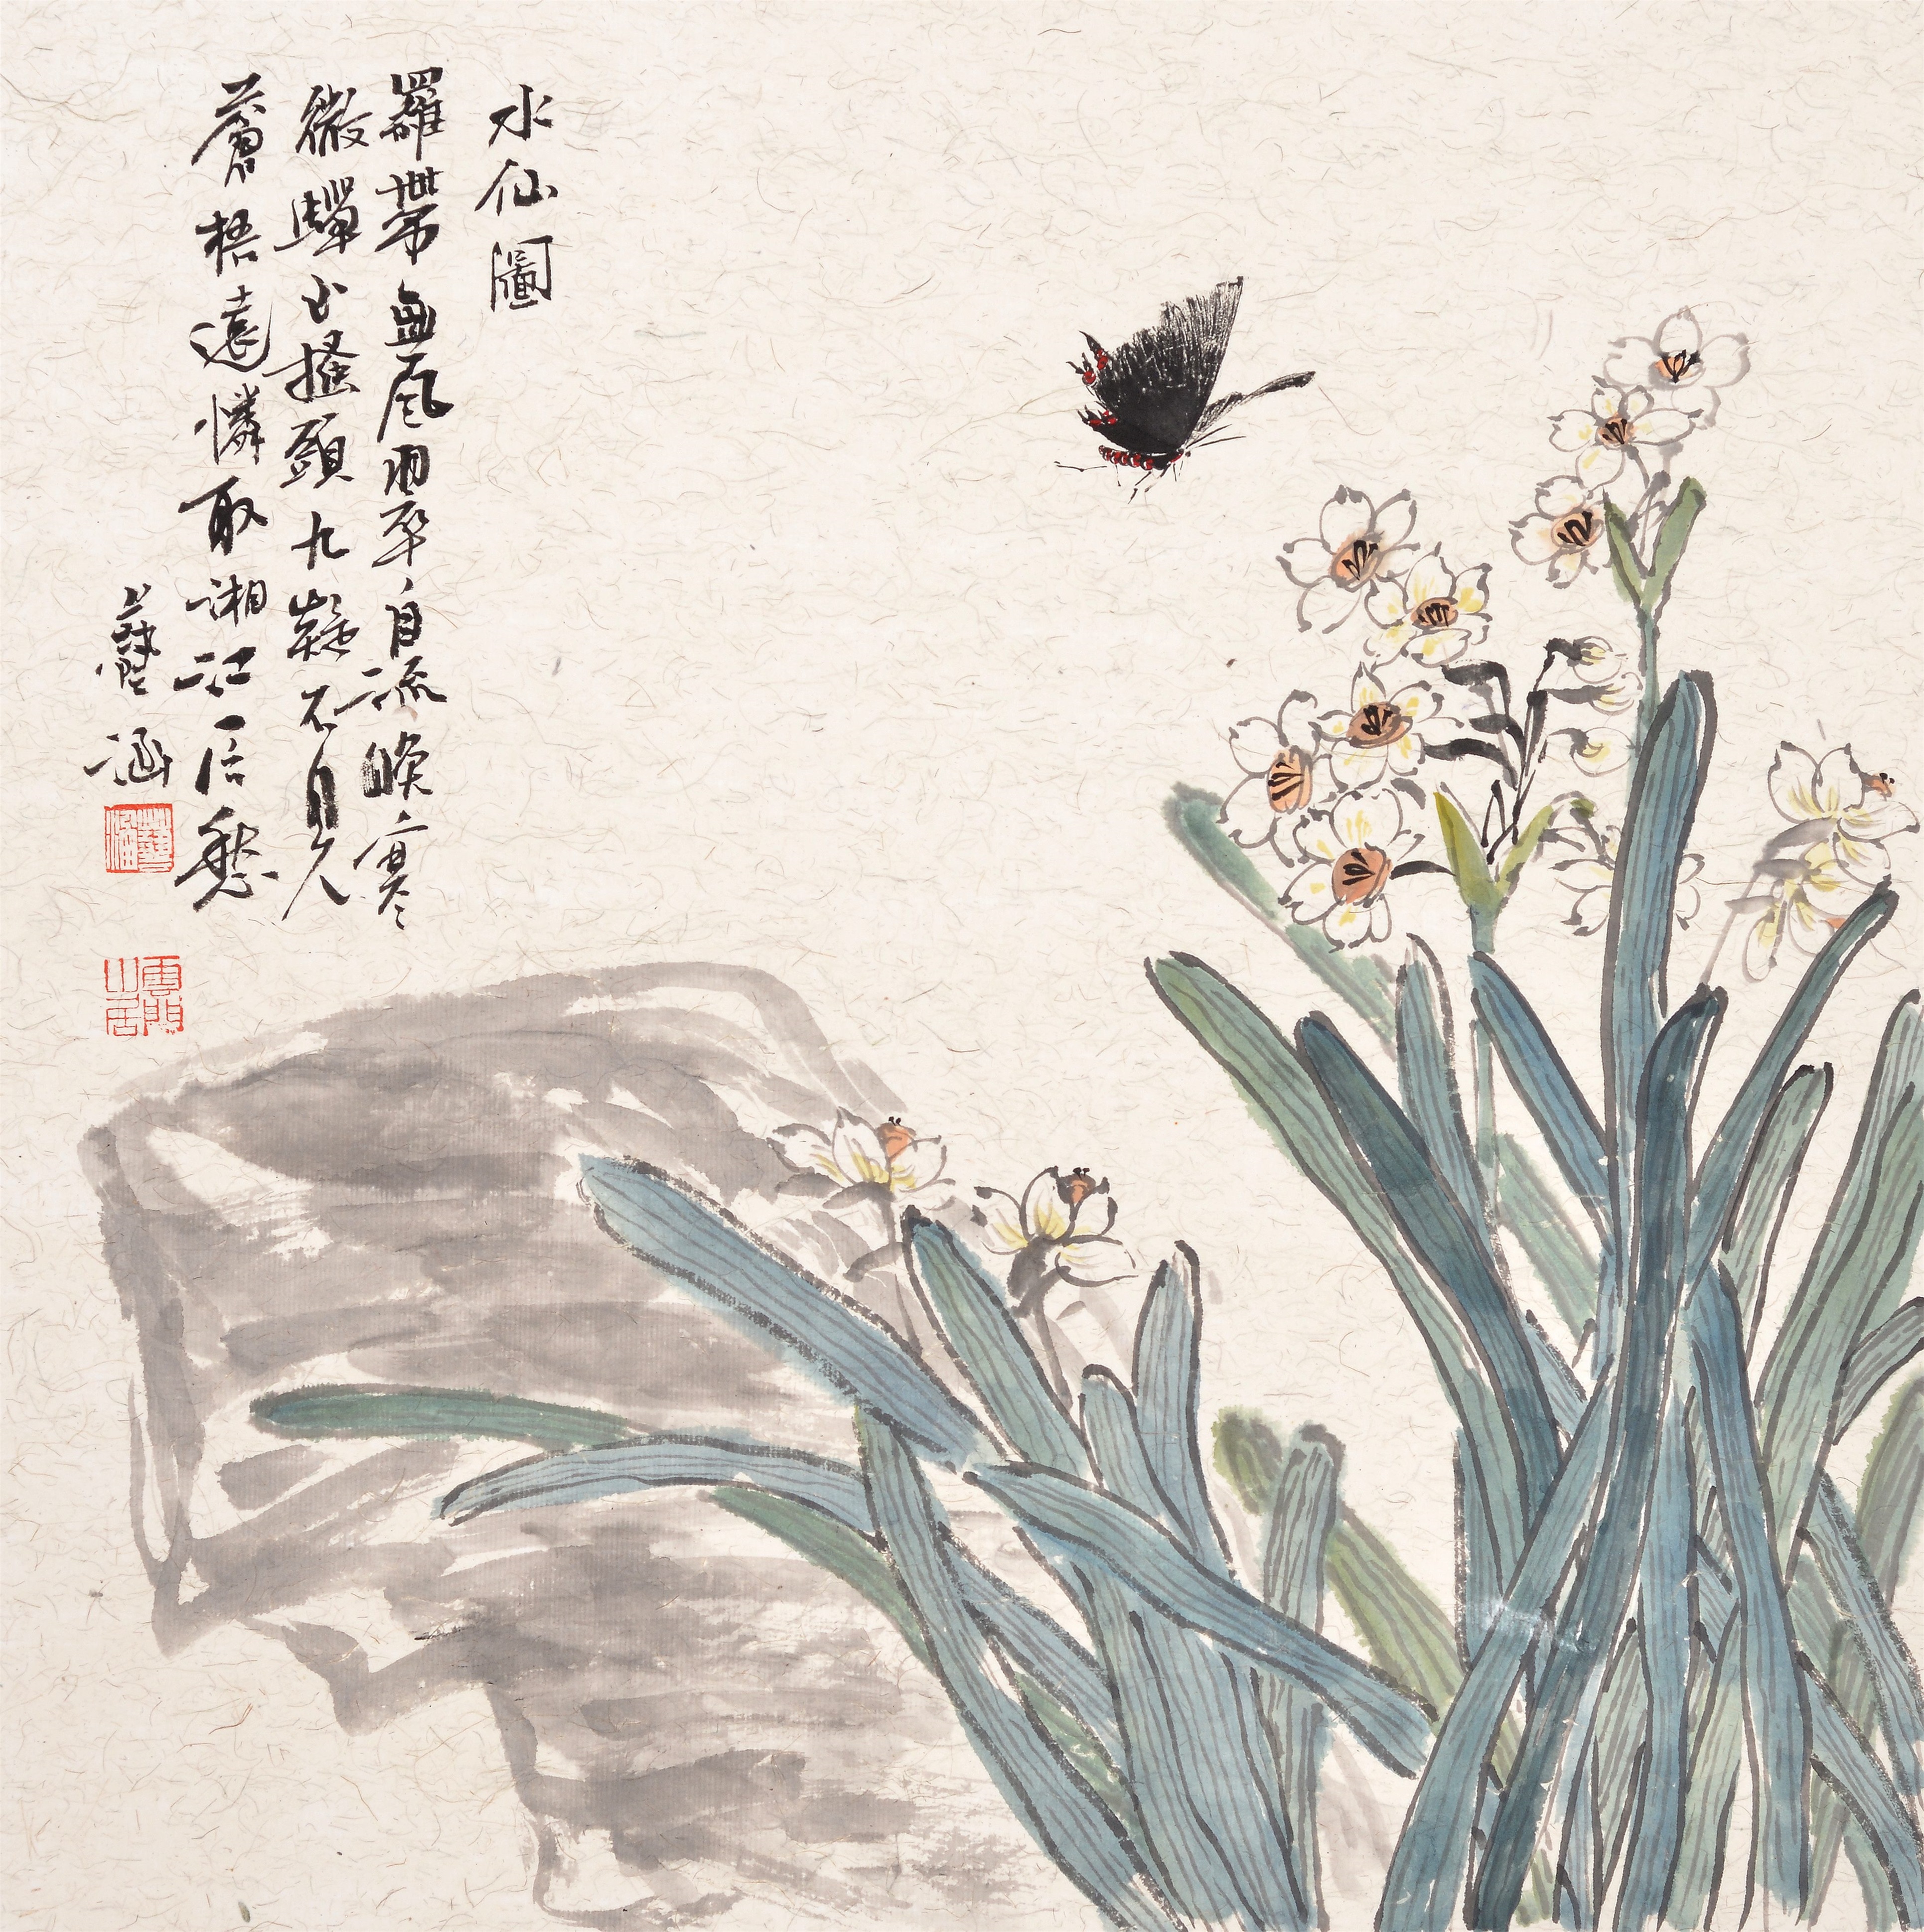 水仙圖
羅帶無風翠自流晚寒
微軃玉搔頭九疑不見
蒼梧遠憐取湘江一片愁
藝涵
藝涵
雲門山居